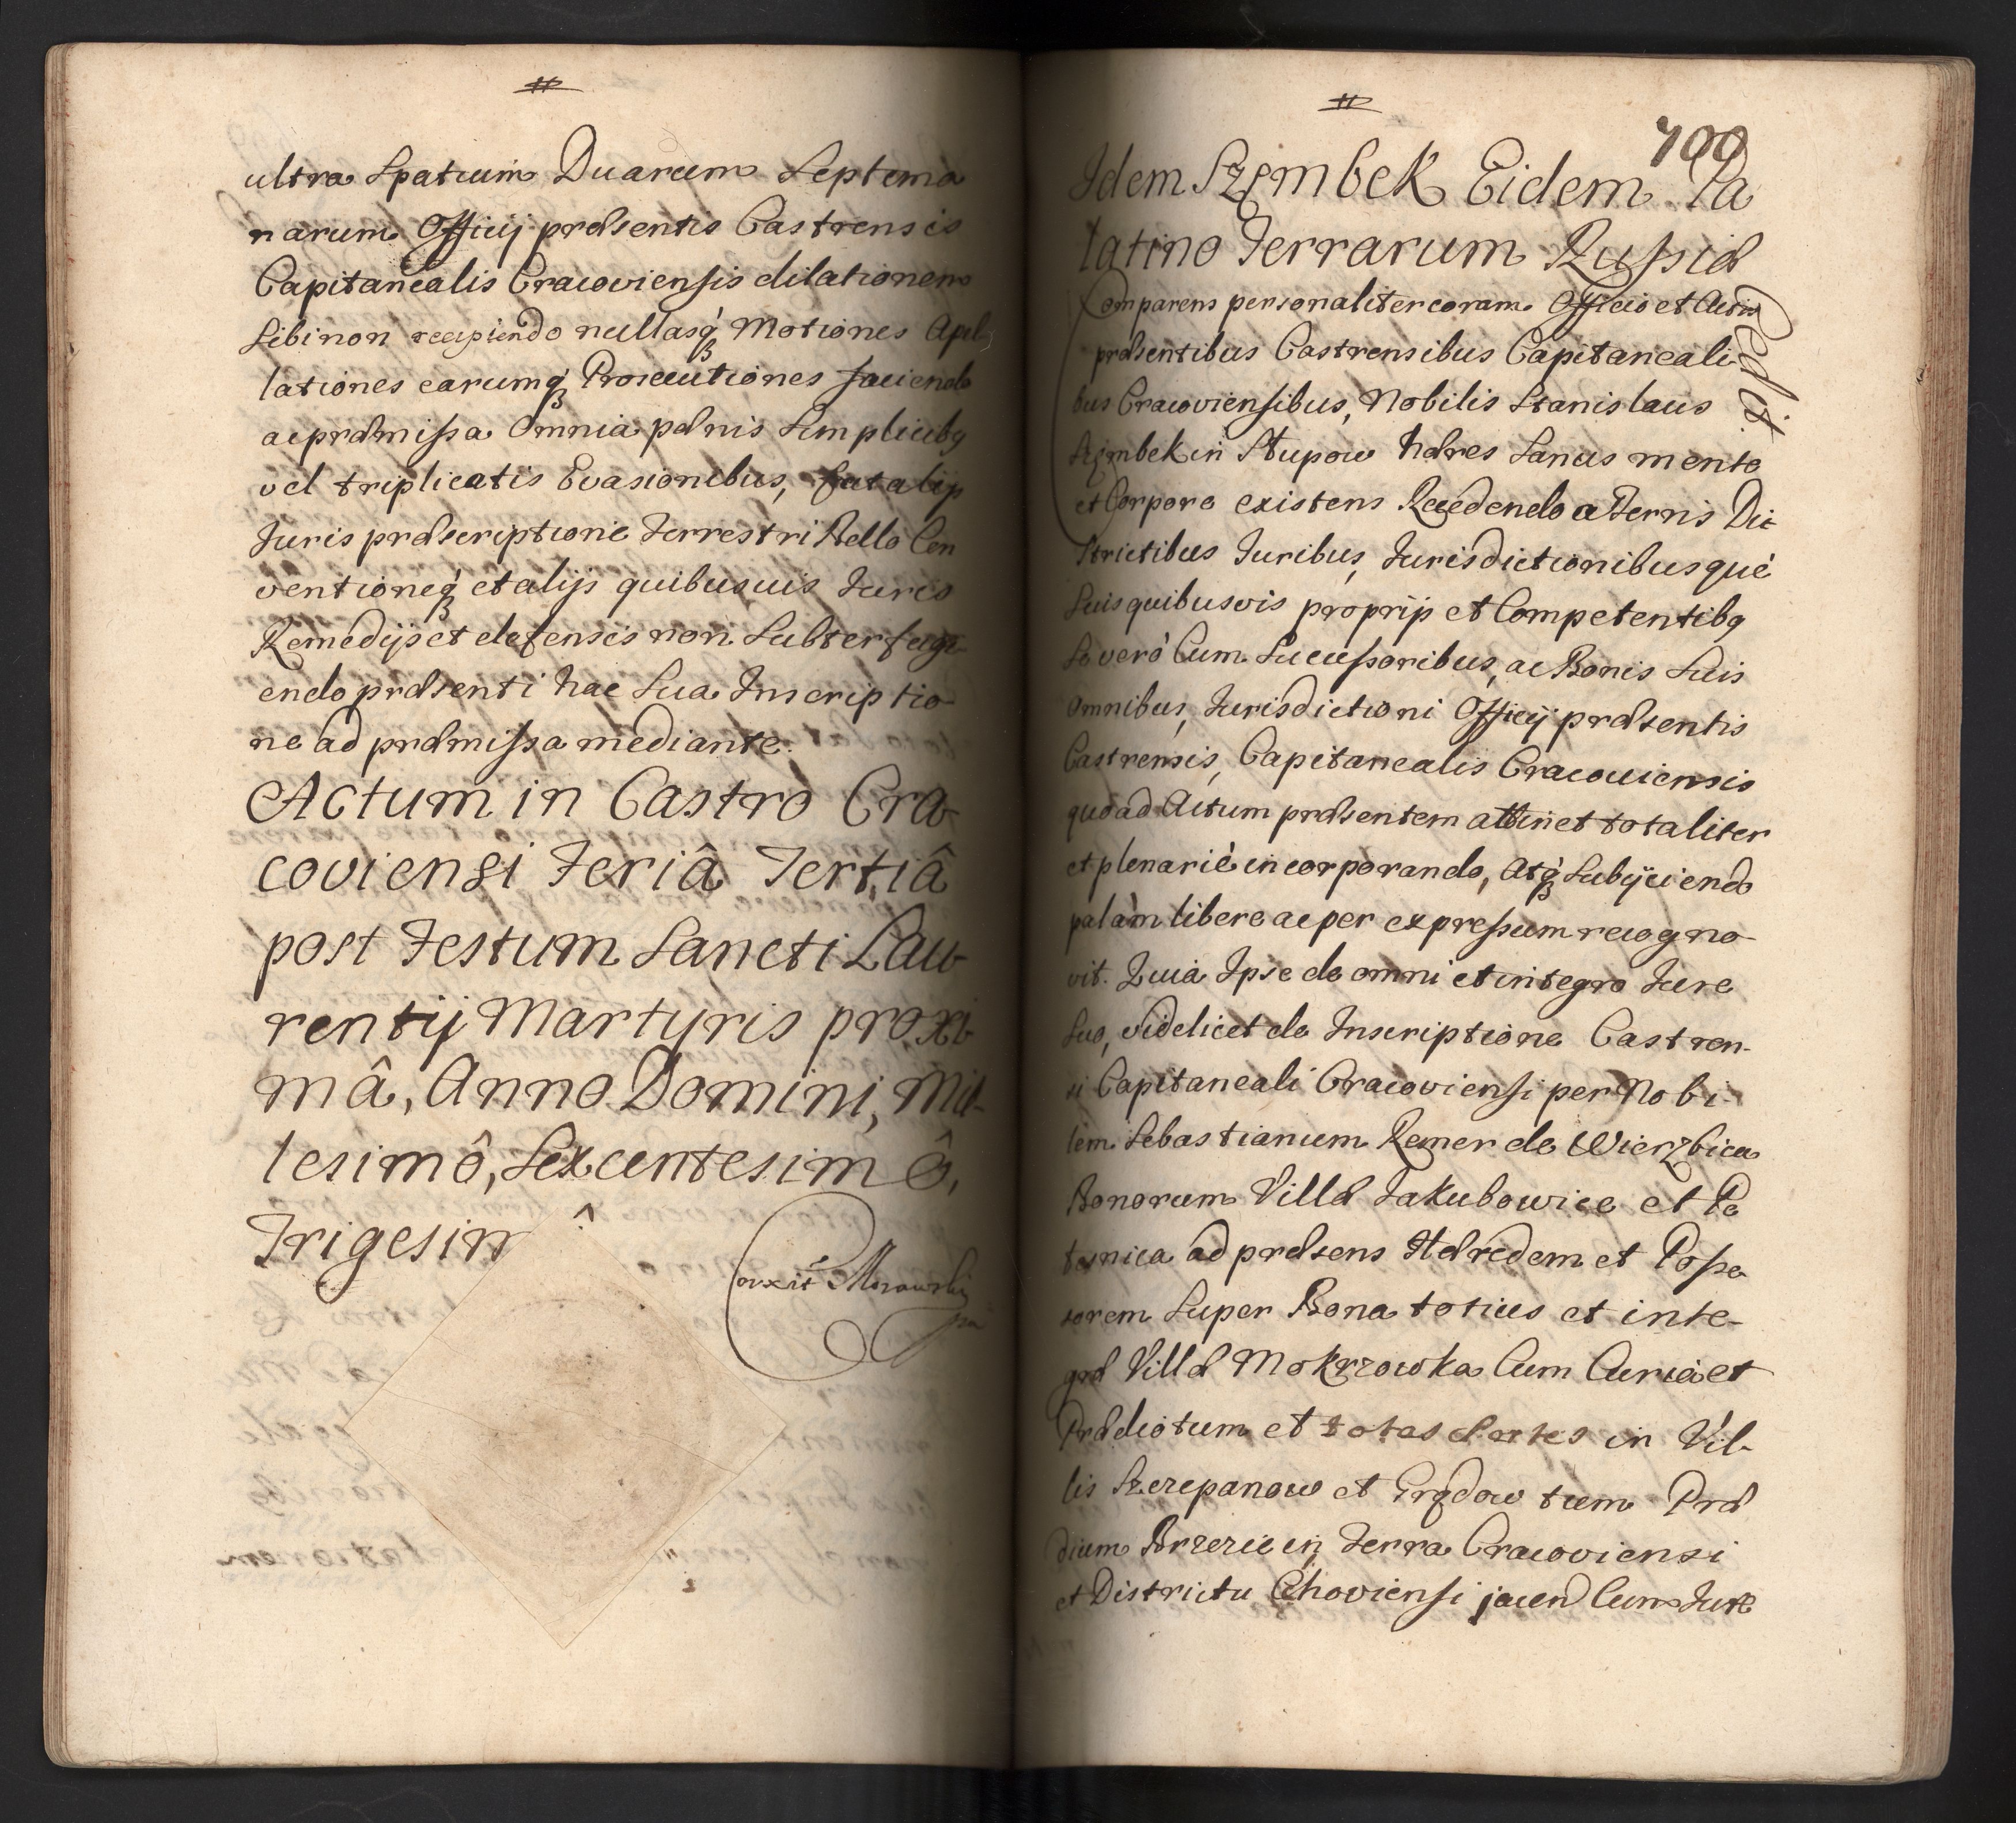 #
ultra Spatium Duarum Septima
narum Officij præsentis Castrensis
Capitanealis Cracoviensis dilationem
Sibi non recipiendo nullasq́ Motiones Apel
lationes earumq́ Prosecutiones faciendo
ac præmissa Omnia pænis Simplicibq
vel triplicatis Evasionibus, fatalip
Juris præscriptione Terrestri Bello Con
ventioneq́ et alijs quibusuis Juris
Remedijs et defensis non Subterfugi
endo præsenti hac Sua Inscriptio
ne ad præmissa mediante.
Actum in Castro Cra
coviensi Feriâ Tertiâ
post Festum Sancti Lau
rentij Martyris proxi
mâ, Anno Domini, Mil
lesimô, Sexcentesimô,
Trigesim
Conxit Morawski
#
700
Idem Szembek Eidem Pa
latino Terrarum Russiæ
Comparens personaliter coram Officio et Actis
præsentibus Castrensibus Capitaneali
bus Cracoviensibus, Nobilis Stanislaus
Szembek in Stupow hæres Sanus mente
et Corpore existens Recedendo a Terris Dis
strictibus Juribus, Jurisdictionibusque
Suis quibusvis proprijs et Competentibq
Se verò Cum Successoribus, ac Bonis Suis
Omnibus, Jurisdictioni Officij præsentis
Castrensis, Capitanealis Cracouiensis
quoad Actum præsentem attinet totaliter
et plenariè incorporando, Atq́ Subijciendo
palàm libere ac per expressum recogno-
vit. Quia Ipse de omni et integro Jure
Suo, videlicet de Inscriptione Castren-
si Capitaneali Cracoviensi per Nobi-
lem Sebastianum Remer de Wierzbica
Bonorum Villæ Jakubowice et Pe
tesnica ad præsens Hæredem et Posse
sorem Super Bona totius et inte-
græ Villæ Mokrzowka Cum Curia et
Prædio tum et totas Sortes in Vil-
lis Szczepanow et Grądow tum Præ
dium Brzezie in Terra Cracoviensi
et Districtu Cchoviensi jacen Cum Jure
Cedit